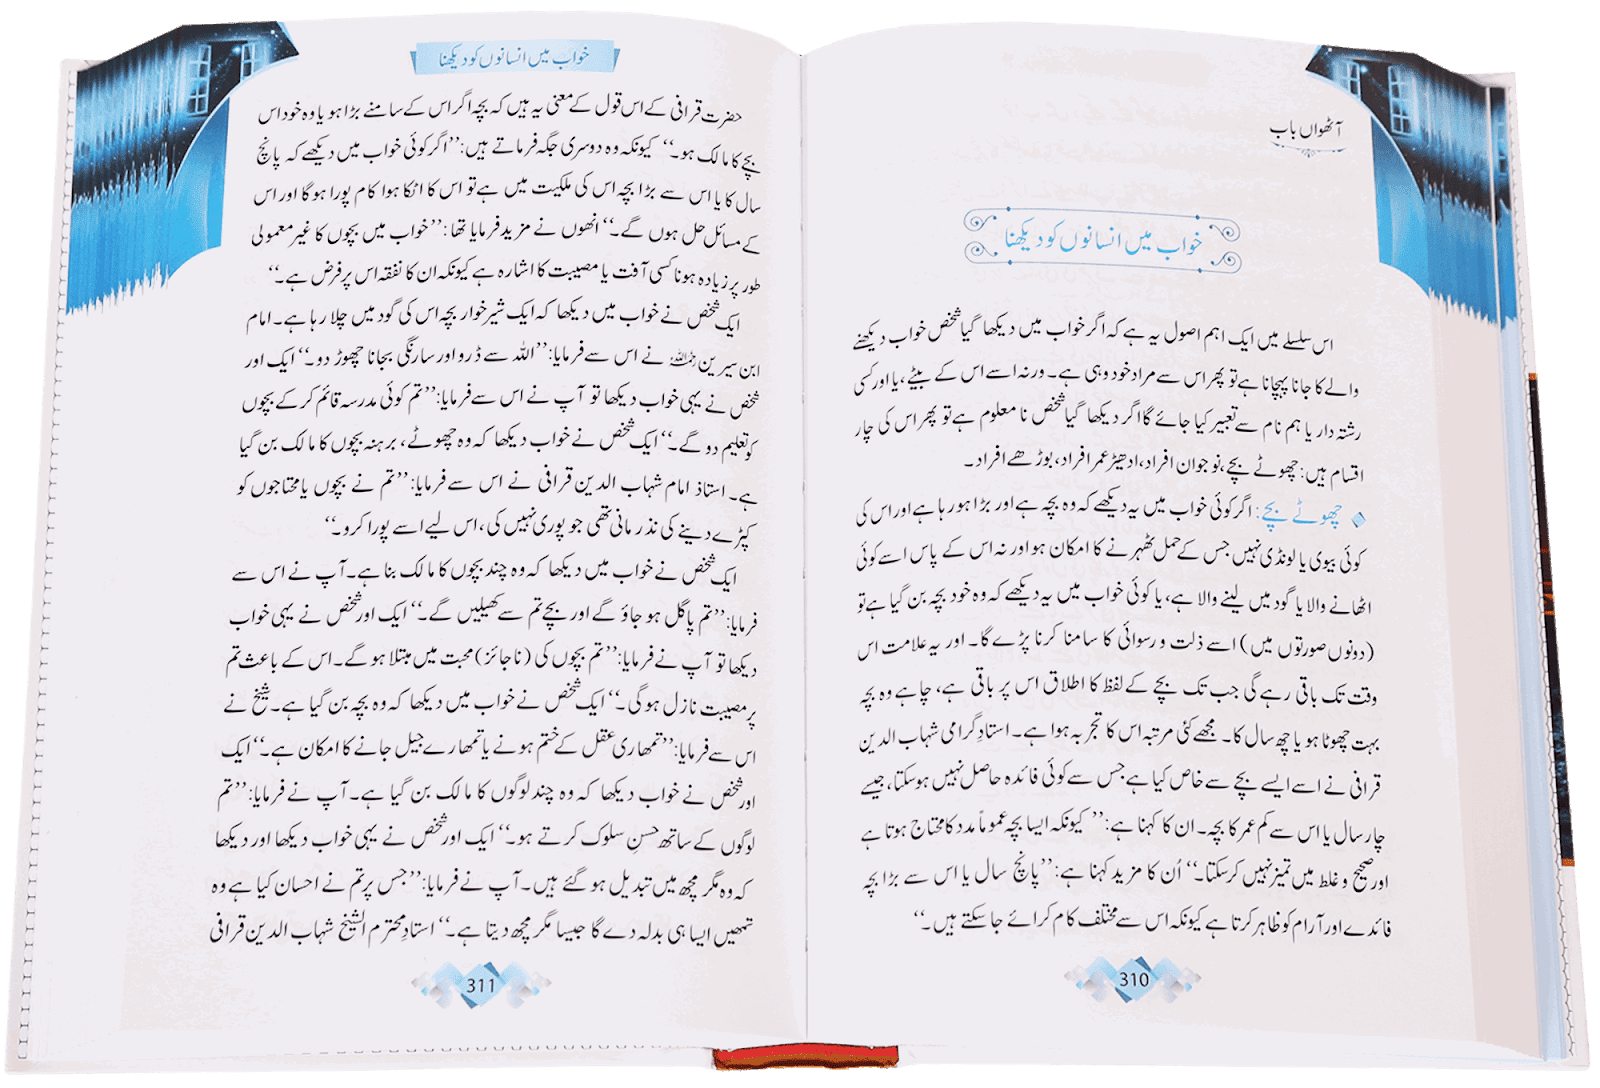 آٹھواں باب
خواب میں انسانوں کو دیکھنا
اس سلسلے میں ایک اہم اصول یہ ہے کہ اگر خواب میں دیکھا گیا شخص خواب دیکھنے
والے کا جانا پہچانا ہے تو پھر اس سے مراد خود وہی ہے۔ ورنہ اسے اس کے بیٹے، یا اور کسی
رشتہ دار یا ہم نام سے تعبیر کیا جائے گا اگر دیکھا گیا شخص نا معلوم ہے تو پھر اس کی چار
اقسام ہیں: چھوٹے بچے، نوجوان افراد، ادھیڑ عمر افراد، بوڑھے افراد۔
چھوٹے بچے: اگر کوئی خواب میں یہ دیکھے کہ وہ بچہ ہے اور بڑا ہو رہا ہے اور اس کی
کوئی بیوی یا لونڈی نہیں جس کے حمل ٹھہرنے کا امکان ہو اور نہ اس کے پاس اسے کوئی
اٹھانے والا یا گود میں لینے والا ہے، یا کوئی خواب میں یہ دیکھے کہ وہ خود بچہ بن گیا ہے تو
(دونوں صورتوں میں) اسے ذلت و رسوائی کا سامنا کرنا پڑے گا۔ اور یہ علامت اس
وقت تک باقی رہے گی جب تک بچے کے لفظ کا اطلاق اس پر باقی ہے، چاہے وہ بچہ
بہت چھوٹا ہو یا چھ سال کا۔ مجھے کئی مرتبہ اس کا تجربہ ہوا ہے۔ استادِ گرامی شہاب الدین
قرافی نے اسے ایسے بچے سے خاص کیا ہے جس سے کوئی فائدہ حاصل نہیں ہو سکتا، جیسے
چار سال یا اس سے کم عمر کا بچہ۔ ان کا کہنا ہے: ’’کیونکہ ایسا بچہ عموماً مدد کا محتاج ہوتا ہے
اور صحیح و غلط میں تمیز نہیں کر سکتا۔‘‘ اُن کا مزید کہنا ہے: ’’پانچ سال یا اس سے بڑا بچہ
فائدے اور آرام کو ظاہر کرتا ہے کیونکہ اس سے مختلف کام کرائے جا سکتے ہیں۔‘‘
310
خواب میں انسانوں کو دیکھنا
حضرت قرافی کے اس قول کے معنی یہ ہیں کہ بچہ اگر اس کے سامنے بڑا ہو یا وہ خود اس
بچے کا مالک ہو۔‘‘ کیونکہ وہ دوسری جگہ فرماتے ہیں: ’’اگر کوئی خواب میں دیکھے کہ پانچ
سال کا یا اس سے بڑا بچہ اس کی ملکیت میں ہے تو اس کا اٹکا ہوا کام پورا ہوگا اور اس
کے مسائل حل ہوں گے۔‘‘ انھوں نے مزید فرمایا تھا: ’’خواب میں بچوں کا غیر معمولی
طور پر زیادہ ہونا کسی آفت یا مصیبت کا اشارہ ہے کیونکہ ان کا نفقہ اس پر فرض ہے۔‘‘
ایک شخص نے خواب میں دیکھا کہ ایک شیر خوار بچہ اس کی گود میں چلا رہا ہے۔ امام
ابن سیرین رحمہ اللہ نے اس سے فرمایا: ’’اللہ سے ڈرو اور سارنگی بجانا چھوڑ دو۔‘‘ ایک اور
شخص نے یہی خواب دیکھا تو آپ نے اس سے فرمایا: ’’تم کوئی مدرسہ قائم کر کے بچوں
کو تعلیم دو گے۔‘‘ ایک شخص نے خواب دیکھا کہ وہ چھوٹے، برہنہ بچوں کا مالک بن گیا
ہے۔ استاذ امام شہاب الدین قرافی نے اس سے فرمایا: ’’تم نے بچوں یا محتاجوں کو
کپڑے دینے کی نذر مانی تھی جو پوری نہیں کی، اس لیے اسے پورا کرو۔‘‘
ایک شخص نے خواب میں دیکھا کہ وہ چند بچوں کا مالک بنا ہے۔ آپ نے اس سے
فرمایا: ’’تم پاگل ہو جاؤ گے اور بچے تم سے کھیلیں گے۔‘‘ ایک اور شخص نے یہی خواب
دیکھا تو آپ نے فرمایا: ’’تم بچوں کی (ناجائز) محبت میں مبتلا ہو گے۔ اس کے باعث تم
پر مصیبت نازل ہوگی۔‘‘ ایک شخص نے خواب میں دیکھا کہ وہ بچہ بن گیا ہے۔ شیخ نے
اس سے فرمایا: ’’تمھاری عقل کے ختم ہونے یا تمھارے جیل جانے کا امکان ہے۔‘‘ ایک
اور شخص نے خواب دیکھا کہ وہ چند لوگوں کا مالک بن گیا ہے۔ آپ نے فرمایا: ’’تم
لوگوں کے ساتھ حسنِ سلوک کرتے ہو۔‘‘ ایک اور شخص نے یہی خواب دیکھا اور دیکھا
کہ وہ مگر مچھ میں تبدیل ہو گئے ہیں۔ آپ نے فرمایا: ’’جس پر تم نے احسان کیا ہے وہ
تمھیں ایسا ہی بدلہ دے گا جیسا مگر مچھ دیتا ہے۔‘‘ استادِ محترم الشیخ شہاب الدین قرافی
311